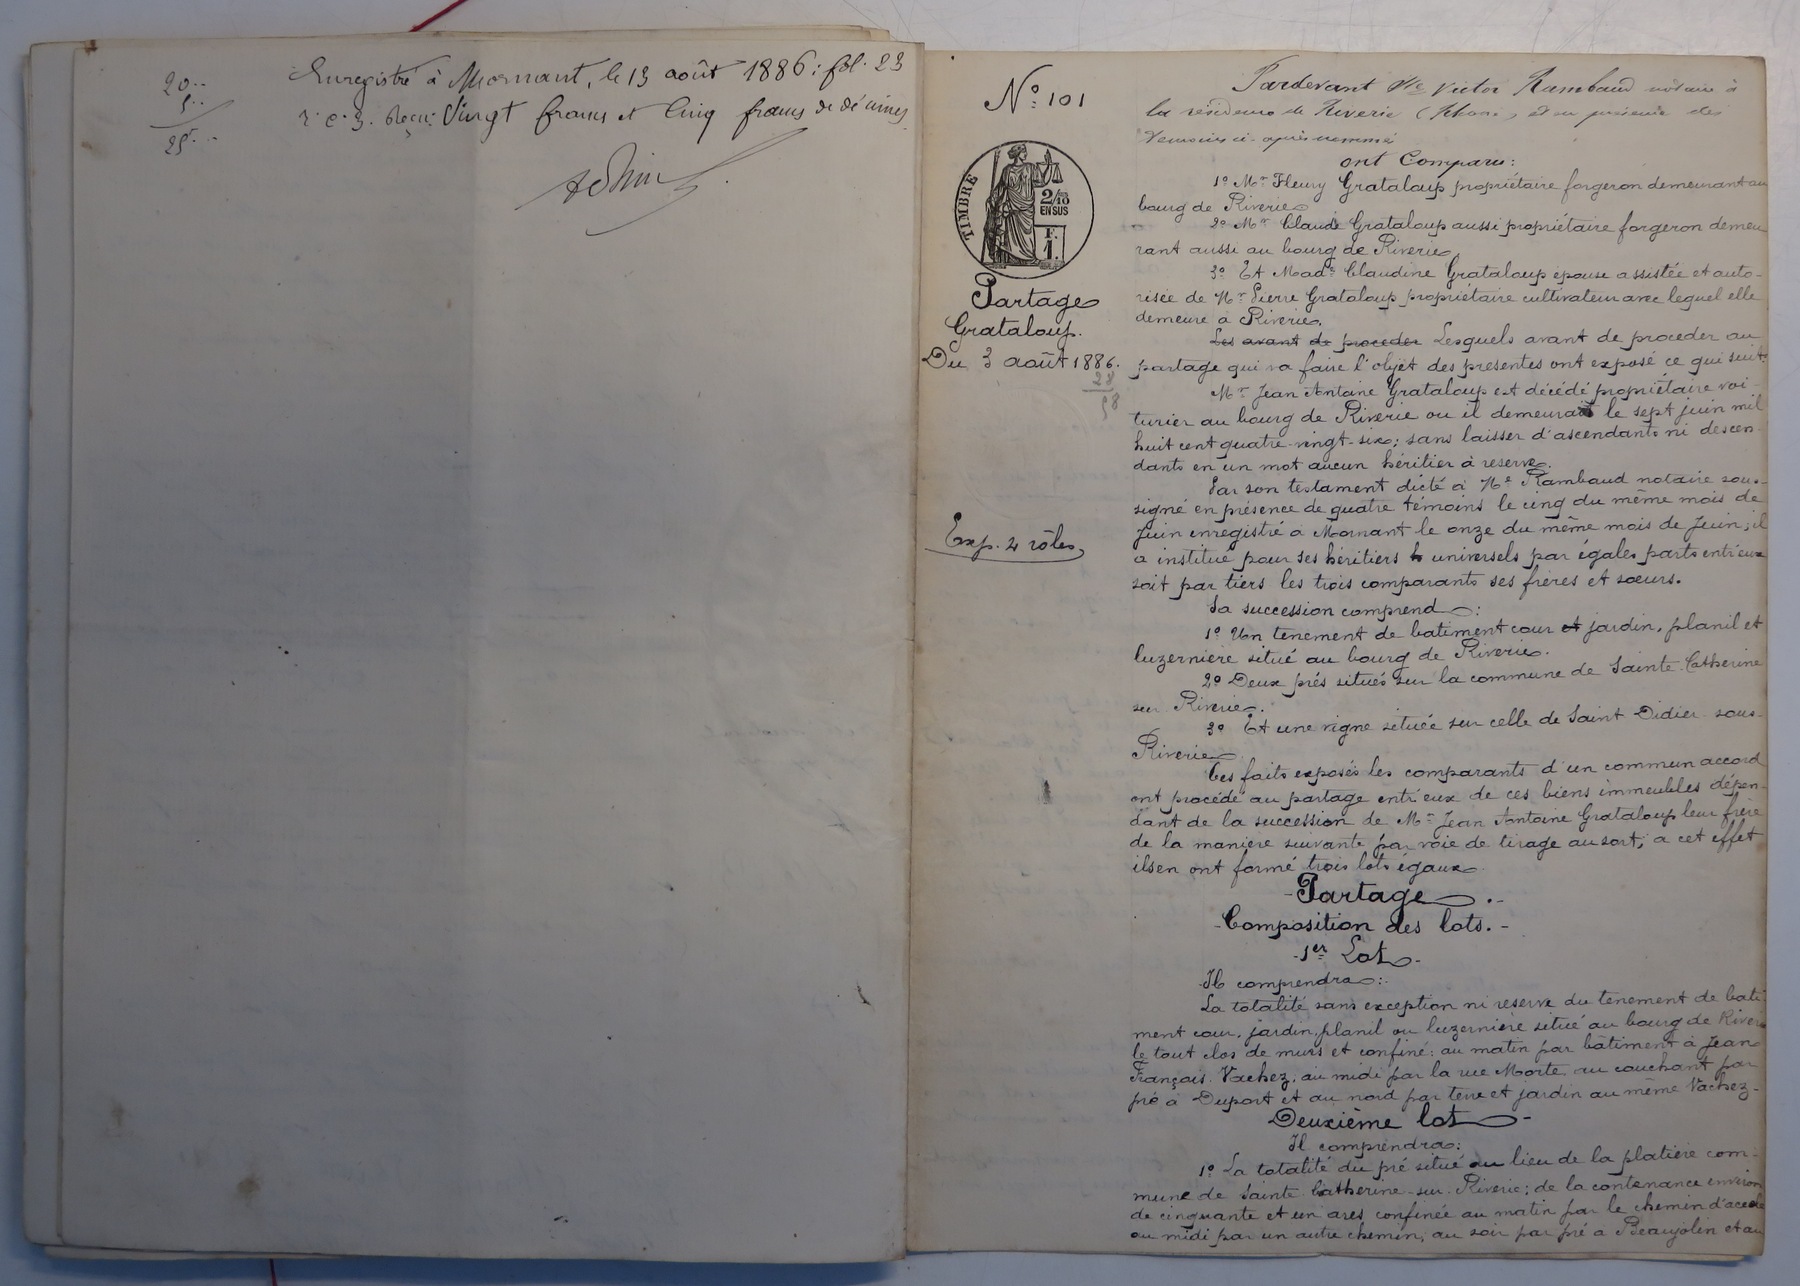 20..
5..
25f...
Enregistré à Mornant, le 13 août 1886; fol. 23
r. c. 3. Reçu: Vingt francs et Cinq francs de décimes
N° 101
TIMBRE
2/10
EN SUS
F.
1.
Partage
Grataloup.
Du 3 août 1886.
28
58
Exp. 4 rôles
Pardevant Me Victor Rambaud notaire à
la résidence de Riverie (Rhône) et en présence des
témoins ci-après nommés
ont Comparu:
1° Mr Fleury Grataloup propriétaire forgeron demeurant au
bourg de Riverie
2° Mr Claude Grataloup aussi propriétaire forgeron demeu
rant aussi au bourg de Riverie
3° Et Made Claudine Grataloup épouse assistée et auto-
risée de Mr Pierre Grataloup propriétaire cultivateur avec lequel elle
demeure à Riverie.
Les avant de proceder Lesquels avant de proceder au
partage qui va faire l'objet des presentes ont exposé ce qui suit:
Mr Jean Antoine Grataloup est décédé propriétaire voi-
turier au bourg de Riverie ou il demeurait le sept juin mil
huit cent quatre-vingt-six; sans laisser d'ascendants ni descen-
dants en un mot aucun héritier à reserve.
Par son testament dicté à Me Rambaud notaire sous-
signé en présence de quatre témoins le cinq du même mois de
Juin enregistré à Mornant le onze du même mois de Juin; il
a institué pour ses héritiers universels par égales parts entr'eux
soit par tiers les trois comparants ses frères et sœurs.
Sa succession comprend:
1° Un tenement de batiment cour et jardin, planil et
luzerniere situé au bourg de Riverie.
2° Deux prés situés sur la commune de Sainte-Catherine
sur Riverie.
3° Et une vigne située sur celle de Saint Didier sous-
Riverie
Ces faits exposés les comparants d'un commun accord
ont procédé au partage entr'eux de ces biens immeubles dépen-
dant de la succession de Mr Jean Antoine Grataloup leur frère
de la maniere suivante par voie de tirage au sort; a cet effet
ils en ont formé trois lots égaux
- Partage .-
- Composition des lots.-
- 1er Lot -
Il comprendra:
La totalité sans exception ni reserve du tenement de bati-
ment cour, jardin, planil ou luzerniere situé au bourg de Riverie
le tout clos de murs et confiné: au matin par bâtiment à Jean
François Vachez, au midi par la rue Morte, au couchant par
pré à Dupont et au nord par terre et jardin au même Vachez-
Deuxième lot -
Il comprendra:
1° La totalité du pré situé au lieu de la platière com-
mune de Sainte Catherine-sur-Riverie; de la contenance environ
de cinquante et un ares confinée au matin par le chemin d'
au midi par un autre chemin, au soir par pré à Beaujolin et au